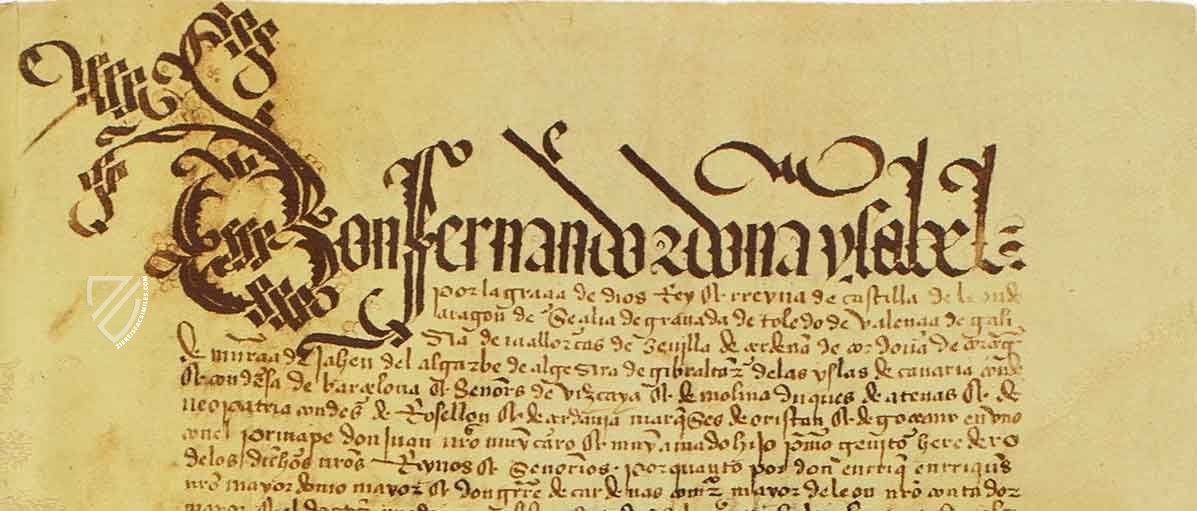 Don fernando & doña ysabel
por la graçia de dios Rey & rreyna de castilla de leon de
aragon de Seçilia de granada de toledo de valençia de gali
zia de mallorcas de Sevilla de çerdeña de cordoua de corçega
de murçia de Jahen del algarbe de algezira de gibraltar de las yslas de canaria conde
& condesa de barçelona & Señores de vizcaya & de molina duques de atenas & de
neopatria condes de Rosellon & de çerdania marqueses de oristan & de goçeano en vno
con el prinçipe don juan nro muy caro & muy amado hijo primo genito heredero
de los dichos nros Reynos & Señorios. por quanto por don enrriq enrriques
nro mayordomo mayor & don gutrre de cardenas comr mayor de leon nro contador
mayor
ZIEREISFACSIMILES.COM